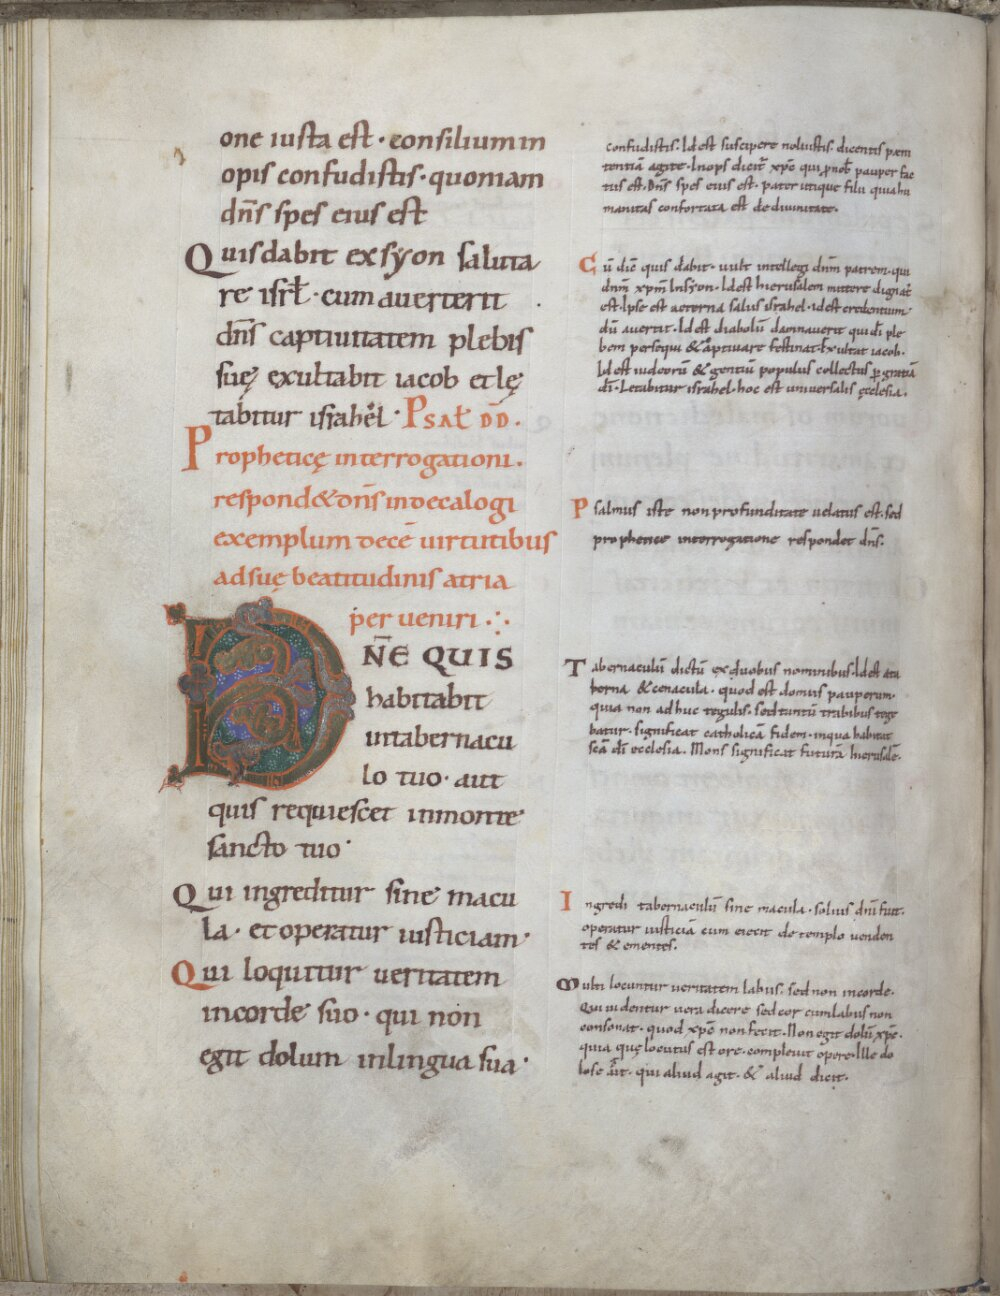 one iusta est · consilium in
opis confudistis · quoniam
dñs spes eius est
Quis dabit ex syon saluta
re isrł · cum auerterit
dñs captiuitatem plebis
suę exultabit iacob et lę
tabitur israhel · PSAŁ DD̄ .
Propheticę interrogationi .
respond& dñs in decalogi
exemplum decē uirtutibus
ad suę beatitudinis atria
per ueniri ∴
DÑE QUIS
habitabit
in tabernacu
lo tuo · aut
quis requiescet in monte
sancto tuo ·
Qui ingreditur sine macu
la · et operatur iusticiam ·
Qui loquitur ueritatem
in corde suo · qui non
egit dolum in lingua sua ·
confudistis. Id est suscipere noluistis. dicentis pæni
tentiā agite. Inops dicit xp̄c qui p nob pauper fac
tus est. Dñs spes eius est. pater utique filii quia hu
manitas confortata est de diuinitate.
Cū diē quis dabit. uult intellegi dnm patrem. qui
dnm xpm In syon. Id est hierusalem mittere dignat
est. Ipse est aeterna salus israhel. id est credentium
dū auertit. Id est diabolū damnauerit qui dī ple
bem persequi & captiuare festinat. Exultat iacob.
Id est iudeorū & gentiū populus collectus p gratiā
dī. Letabitur israhel. hoc est uniuersalis ęclesia.
Psalmus iste non profunditate uelatus est. sed
propheticę interrogatione respondet dñs.
Tabernaculū dictū ex duobus nominibus. Id est ata
berna & cenacula. quod est domus pauperum.
quia non adhuc tegulis. sed tantū trabibus tege
batur. significat catholicā fidem. in qua habitat
scā dī ecclesia. Mons significat futurā hierusalē.
Ingredi tabernaculū sine macula. solius dnī fuit.
operatur iusticiā cum eiecit de templo uenden
tes & ementes.
Multi locuntur ueritatem labiis. sed non in corde.
Qui uidentur uera dicere sed cor cum labiis non
consonat. quod xp̄c non fecit. Non egit dolū xp̄c.
quia quę locutus est ore. compleuit opere. Ille do
lose ait. qui aliud agit. & aliud dicit.